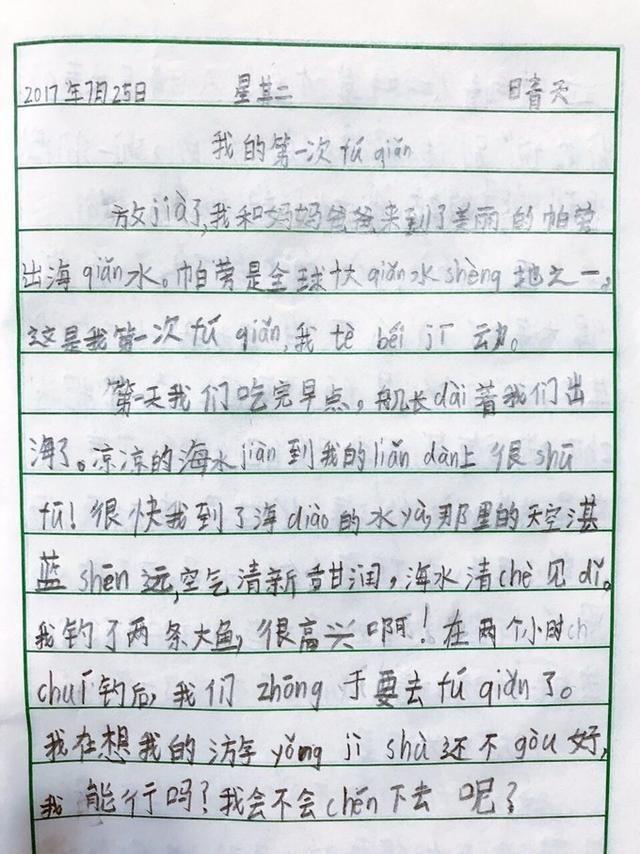 2017年7月25日 星其二 晴天
我的第一次fú qiǎn
放jià了,我和妈妈爸爸来到了美丽的帕劳
出海qiǎn水。帕劳是全球十大qiǎn水shèng地之一。
这是我第一次fú qiǎn,我tè béi jī动。
第一天我们吃完早点,船长dài着我们出
海了。凉凉的海水jiàn到我的liǎn dàn上很shū
fú!很快我到了海diào的水yù,那里的天空湛
蓝shēn远,空气清新甘甜润,海水清chè见dǐ。
我钓了两条大鱼,很高兴啊!在两个小时ch
chuī钓后,我们zhōng于要去fú qiǎn了。
我在想我的游字yǒng jì shù还不gòu好,
我能行吗?我会不会chén下去呢?